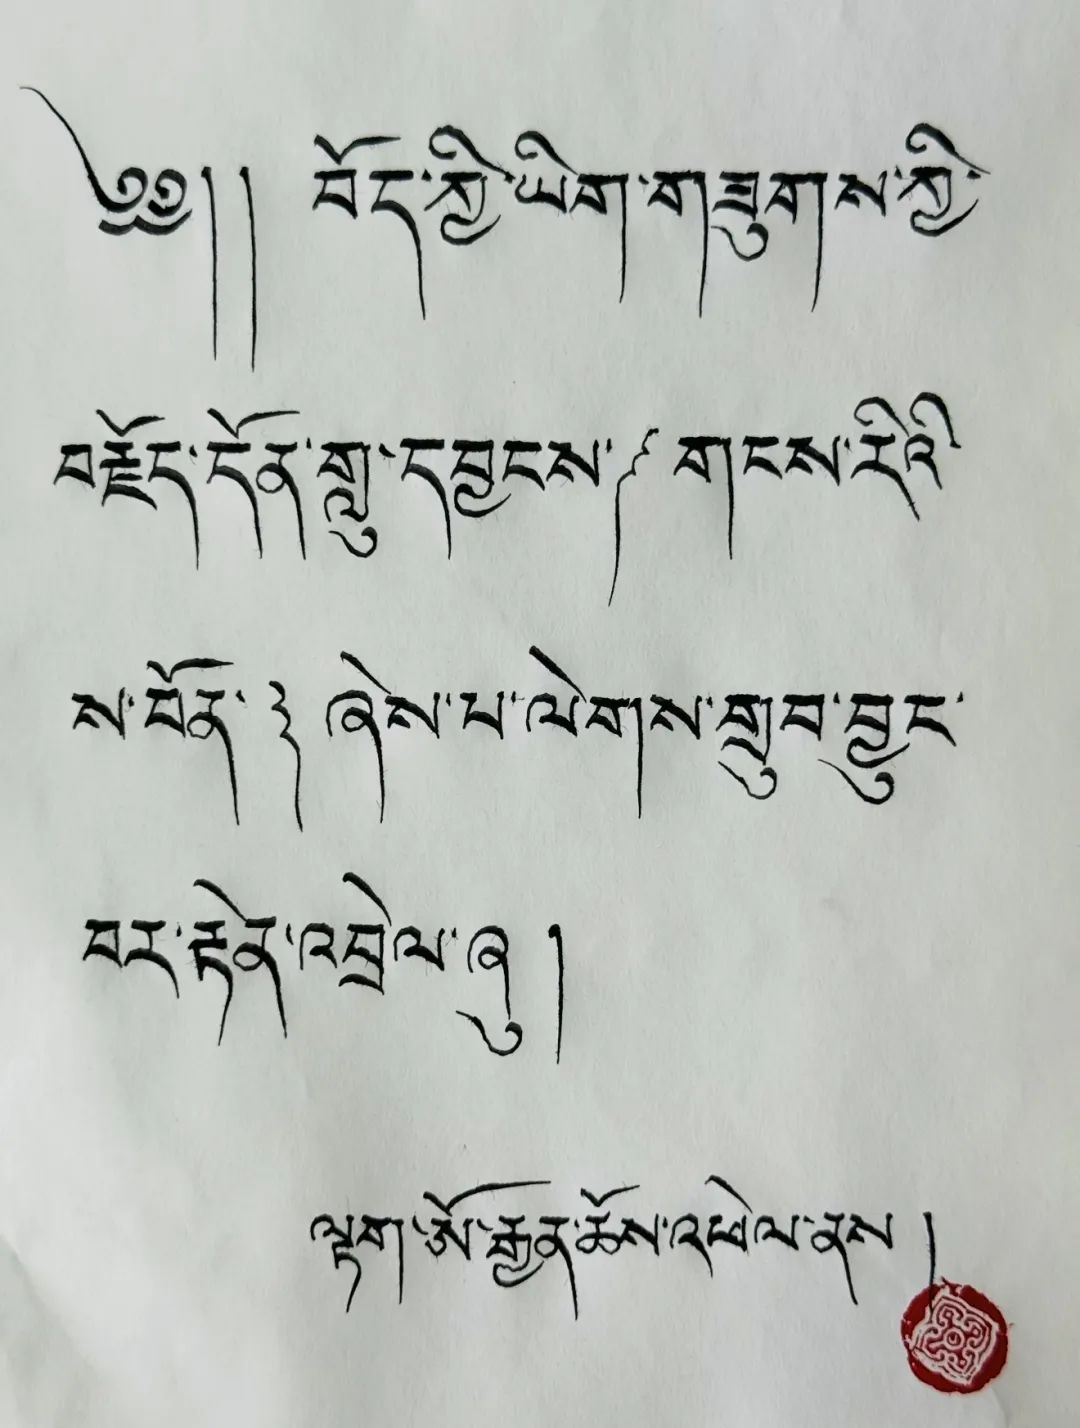 ༄༅།། བོད་ཀྱི་ཡིག་གཟུགས་ཀྱི་
བརྗོད་དོན་གླུ་དབྱངས་༼གངས་རིའི་
ས་བོན་༽ ཞེས་པ་ལེགས་གྲུབ་བྱུང་
བར་རྟེན་འབྲེལ་ཞུ །
ལྟག་ཨོ་རྒྱན་ཆོས་འཕེལ་ནས །